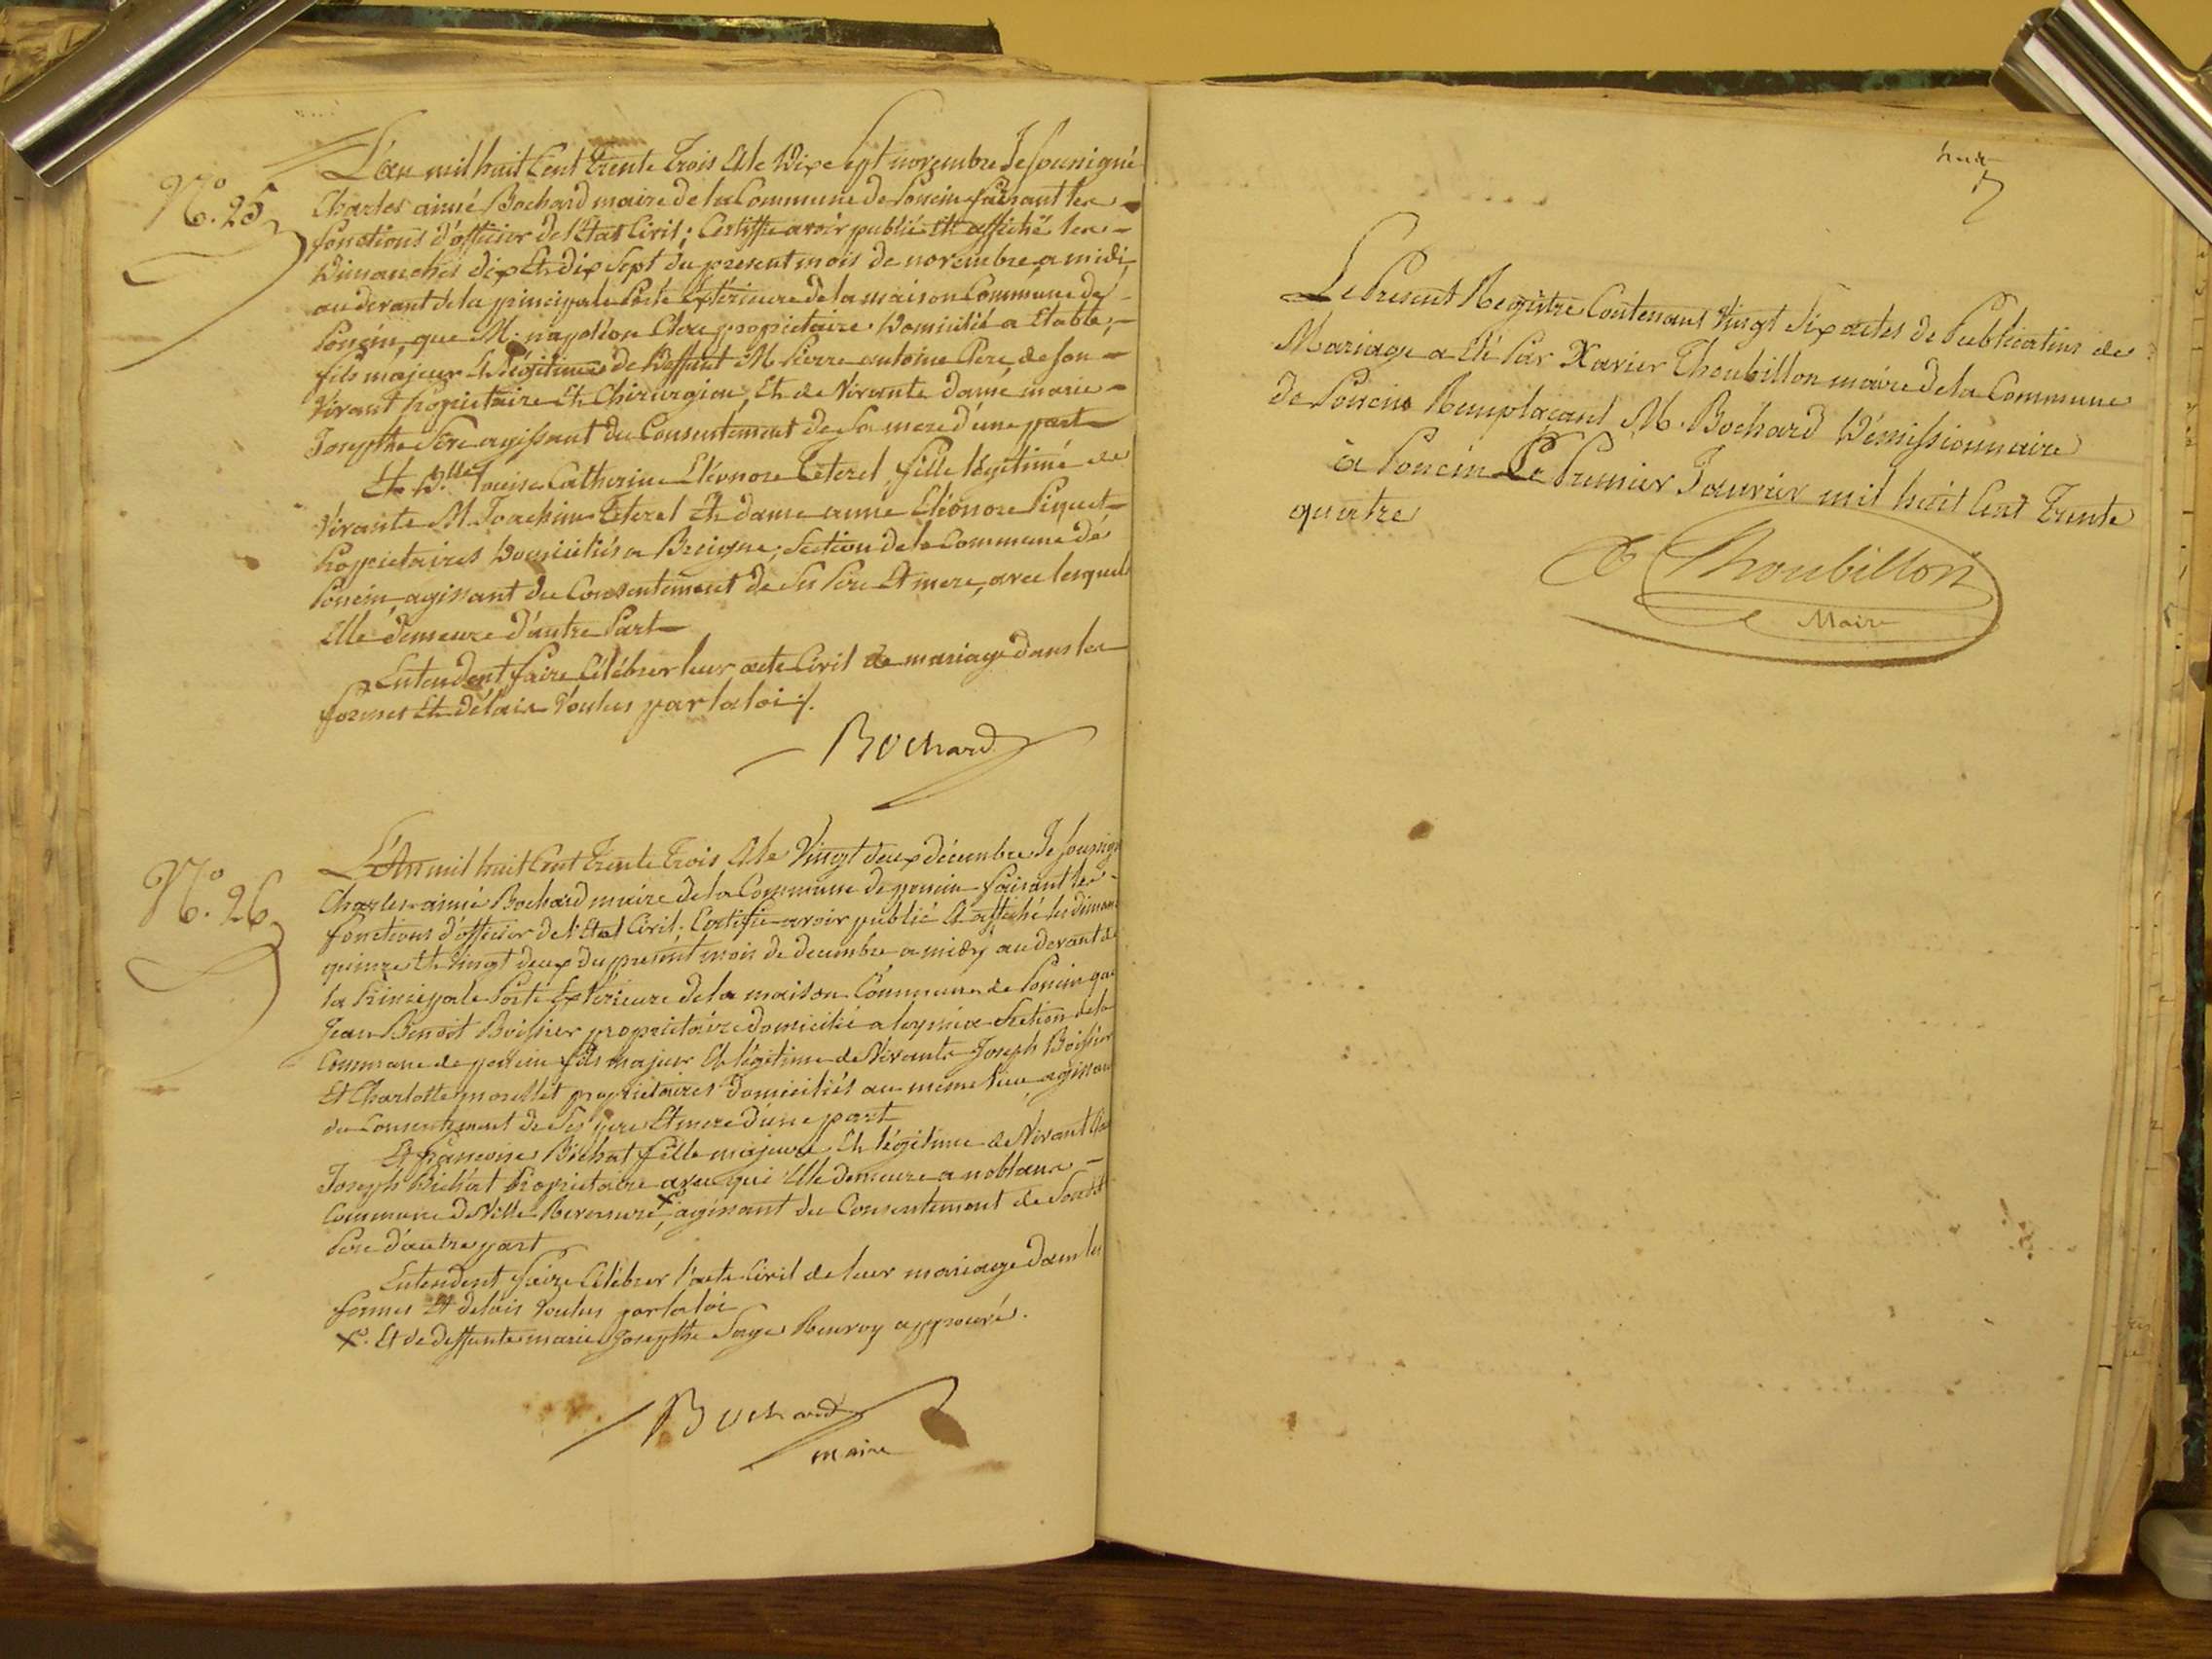 N.o 25
L'an mil huit Cent trente trois & le Dix sept novembre Je soussigné
Charles aimé Bochard maire de la Commune de Poncin faisant les
fonctions d'officier de l'Etat Civil; Certiffie avoir publié et affiché les
Dimanches dix et dix sept du present mois de novembre, a midi,
au devant de la principale Porte Extérieure de la maison Commune de
Poncin, que M. napoléon propriétaire Domicilié a Etable,
fils majeur & légitime de Deffunt M. Pierre antoine de son
Vivant Propriétaire et Chirurgien, et de Vivante dame marie
Josephte agissant du Consentement de Sa mere d'une part
Et D.lle Louise Catherine Eléonore Teterel, fille légitime de
Vivants M. Joachim Teterel et dame anne Eléonore Piquet
Propriétaires Domiciliés a Breigne, Section de la Commune de
Poncin, agissant du Consentement de Ses Pere et mere, avec lesquels
Elle demeure d'autre Part
Entendent faire Célébrer leur acte Civil de mariage dans les
formes et délais Voulus par la loi /.
Bochard
N.o 26
L'An mil huit Cent trente trois & le Vingt deux décembre Je soussigné
Charles aimé Bochard maire de la Commune de poncin faisant les
fonctions d'officier de l'Etat Civil; Certifie avoir publié & affiché les diman
quinze et Vingt deux du present mois de decembre a midy au devant de
la Principale Porte Extérieure de la maison Commune de Poncin que
Jean Benoit Boissier propriétaire domicilié a leymiat Section de la
Commune de poncin fils majeur et légitime de Vivants Joseph Boissier
Et Charlotte morellet propriétaires domiciliés au même lieu, agissant
du Consentement de Ses pere et mere d'une part
Et françoise Bichat fille majeure et légitime de Vivant
Joseph Bichat Propriétaire avec qui Elle demeure a noblans
Commune de Ville Reversure x, agissant du Consentement de Sondit
Pere d'autre part
Entendent faire Célébrer l'acte Civil de leur mariage dans les
formes et delais Voulus par la loi
x. Et de deffunte marie Josephte Sage Renvoy approuvé.
Bochard
maire
huit
Le Present Registre Contenant Vingt Six actes de Publications de
Mariage a été Par Xavier Thoubillon maire de la Commune
de Poncin Remplaçant M. Bochard Démissionnaire
à Poncin Le Premier Janvier mil huit Cent Trente
quatre
X Thoubillon
Maire